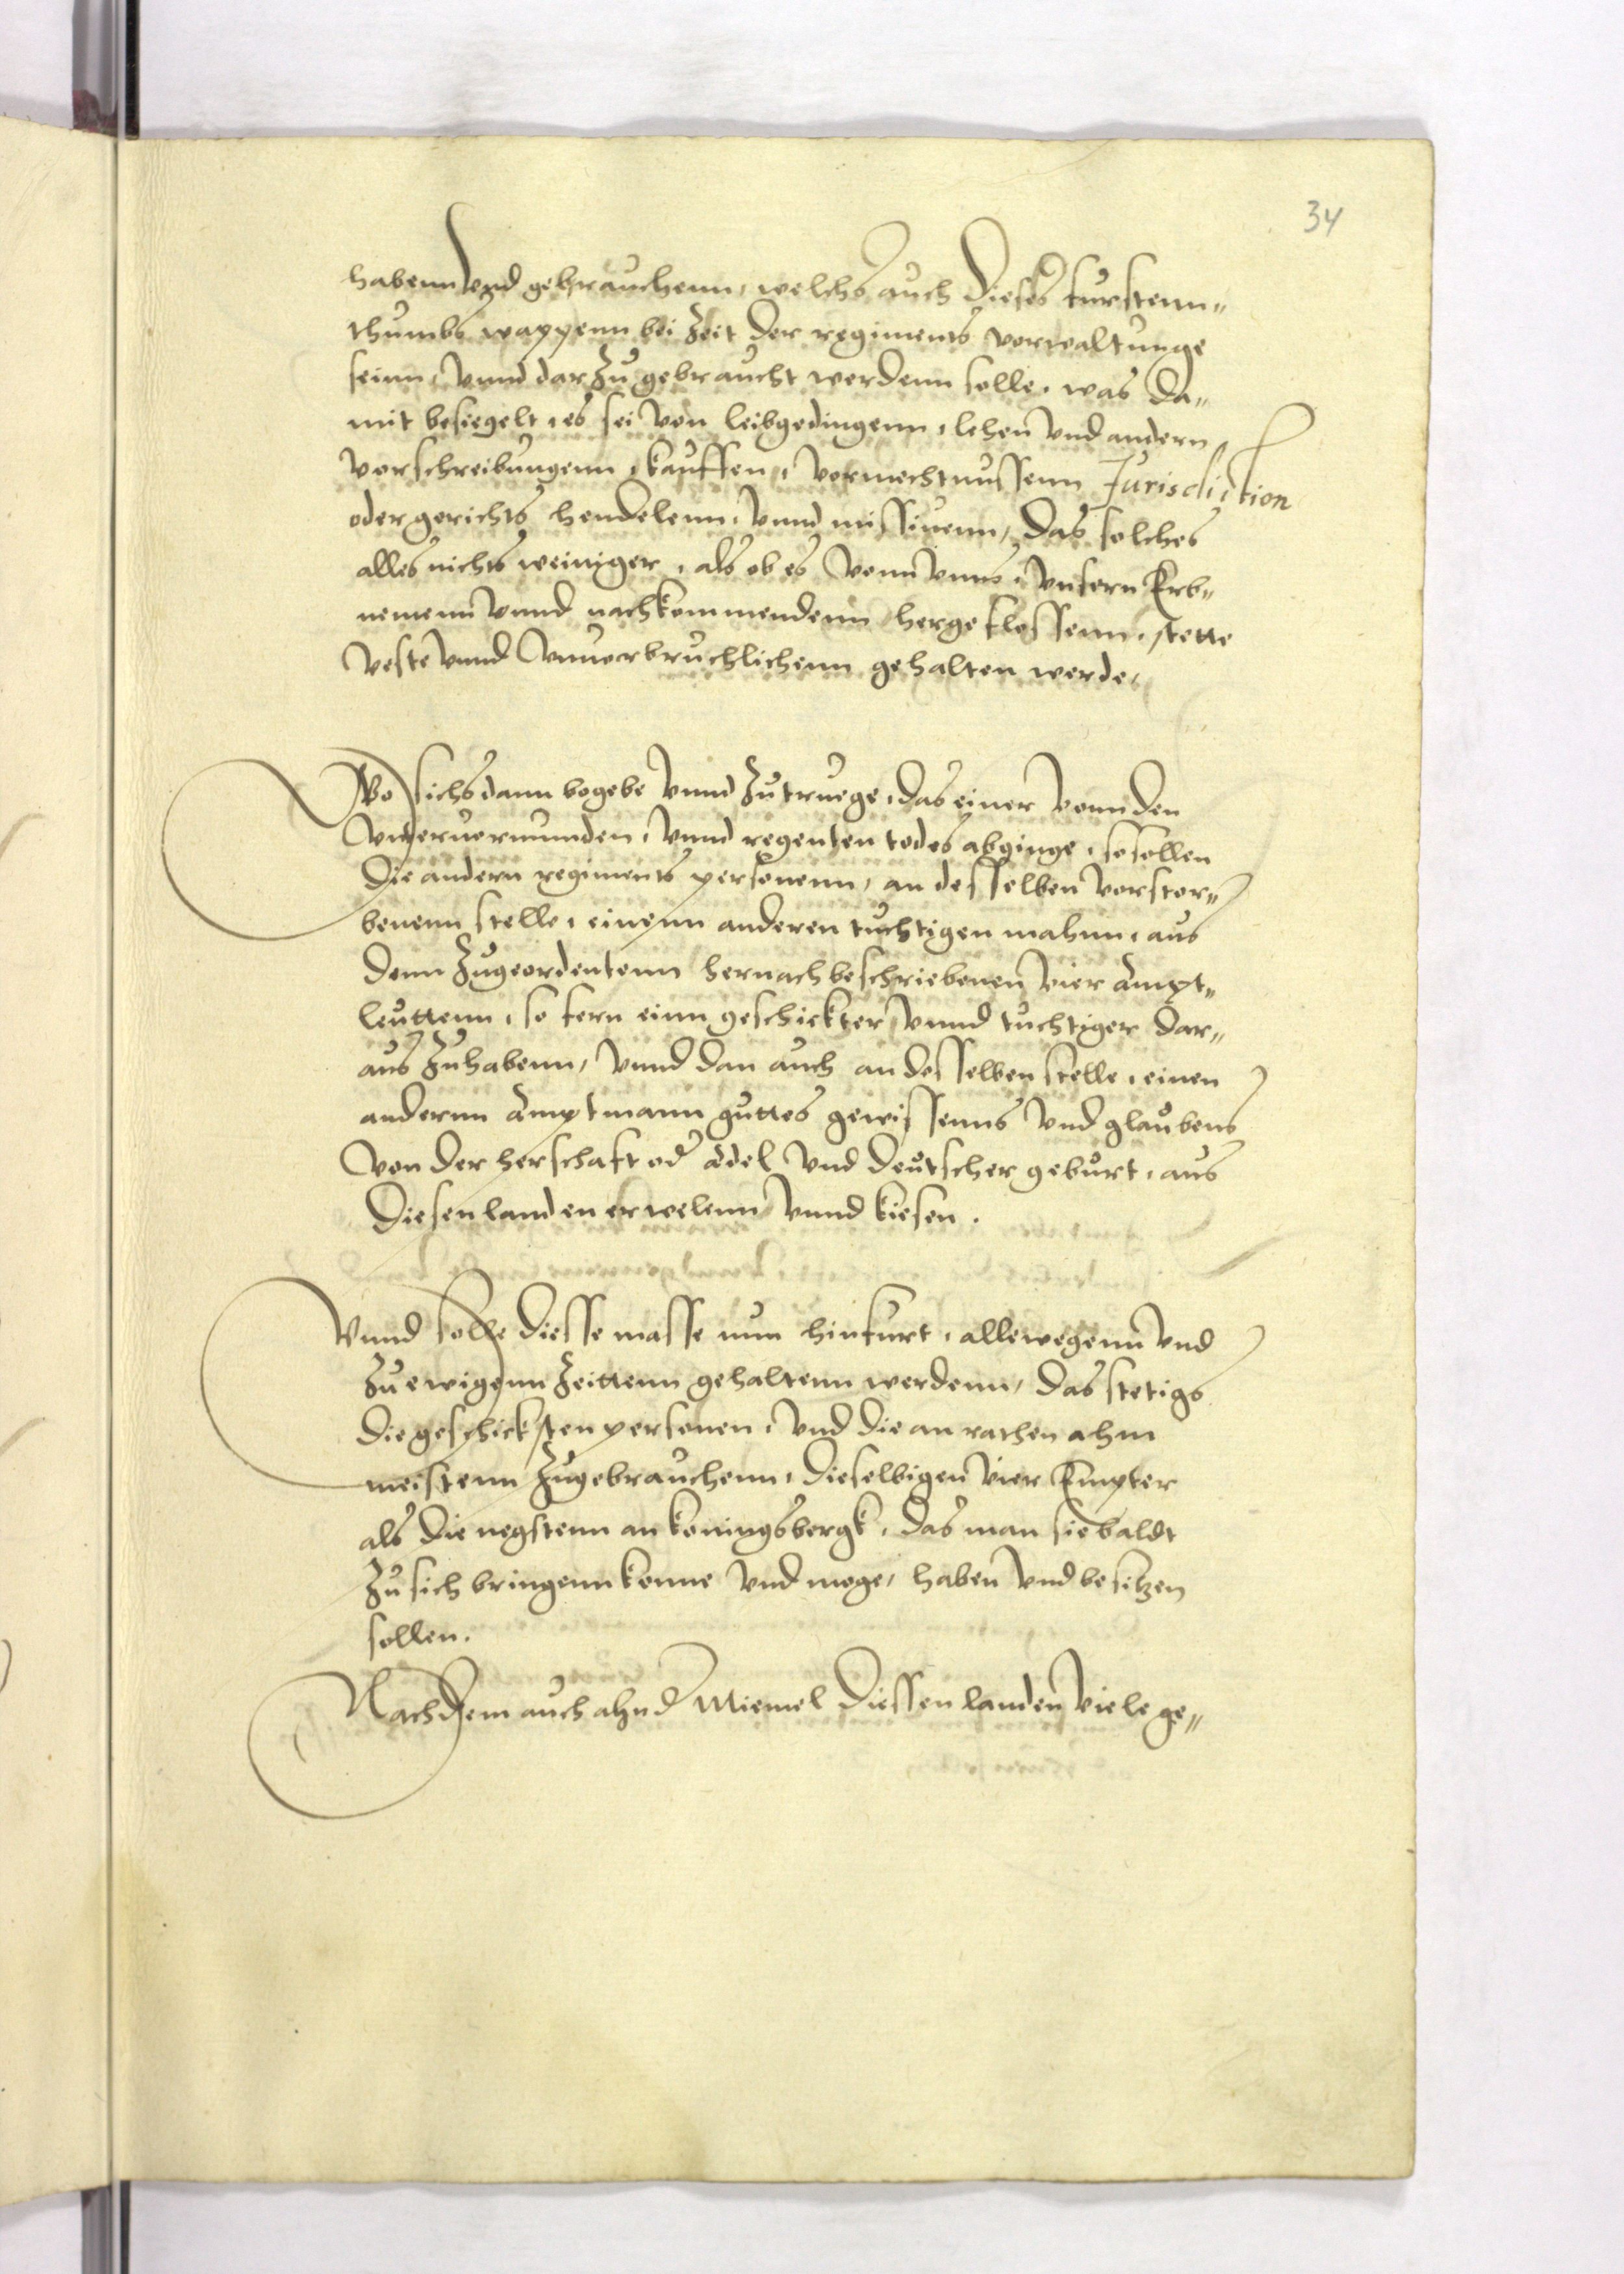 34
habenn vnd gebrauchenn, welchs auch dieses furstenn„
thumbs wappenn bei Zeit der regiments vorwaltunge
seinn, vnnd dar Zu gebraucht werdenn solle, was da„
mit besiegelt, es sei von leibgedingenn, lehen vnd andern
vorschreibungenn, kauffen, vormechtnussenn Jurisdiction
oder gerichts hendelenn, vnnd missiuenn, das solches
alles nichts weiniger, als ob es vonn vnns, vnsern Erb„
nemenn vnnd nachkommendenn hergeflossenn, stette
veste vnnd vnuorbruchlichenn gehalten werde,
Wo sichs dann begebe vnnd Zutruege, das einer vonn den
vnteruormunden, vnnd regenten todes abginge, so sollen
die andern regiments personenn, an desselben vorstor„
benenn stelle, einenn anderen tuchtigen mahnn, aus
denn Zugeordentenn hernach beschriebenen vier ampt„
leuttenn, so fern einn geschickter vnnd tuchtiger dar„
aus Zuhabenn, vnnd dan auch an desselben stelle, einen
andernn amptmann guttes gewissenns vnd glaubens
von der herschaft od adel vnd deutscher geburt, aus
diesen landen erwelenn vnnd kiesen.
Vnnd solle diesse masse nun hinfurt, allewegenn vnd
Zu ewigenn Zeittenn gehaltenn werdenn, das stetigs
die geschicksten personen, vnd die an rathen ahm
meistenn Zugebrauchenn, dieselbigen vier Empter
als die negstenn an koningsbergk, das man sie baldt
Zu sich bringenn konne vnd moge, haben vnd besitzen
sollen.
Nachdem auch ahn d Miemel diessen landen viele ge„